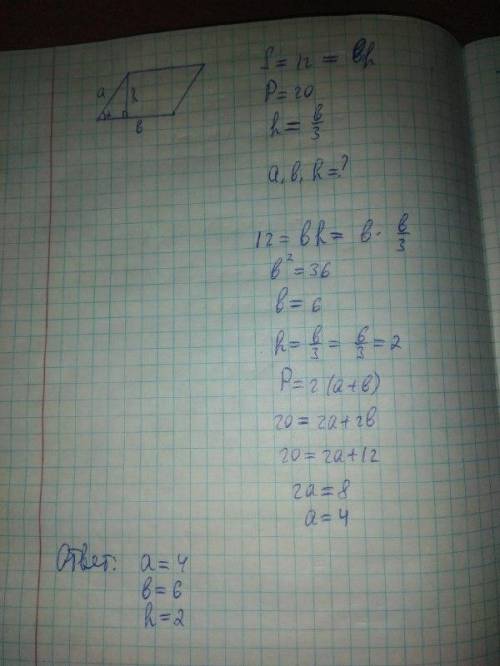 a
h
в
S = 12 = вh
P = 20
h = в/3
a, в, h = ?
12 = вh = в · в/3
в² = 36
в = 6
h = в/3 = 6/3 = 2
P = 2 (a + в)
20 = 2a + 2в
20 = 2a + 12
2a = 8
a = 4
Ответ: a = 4
в = 6
h = 2